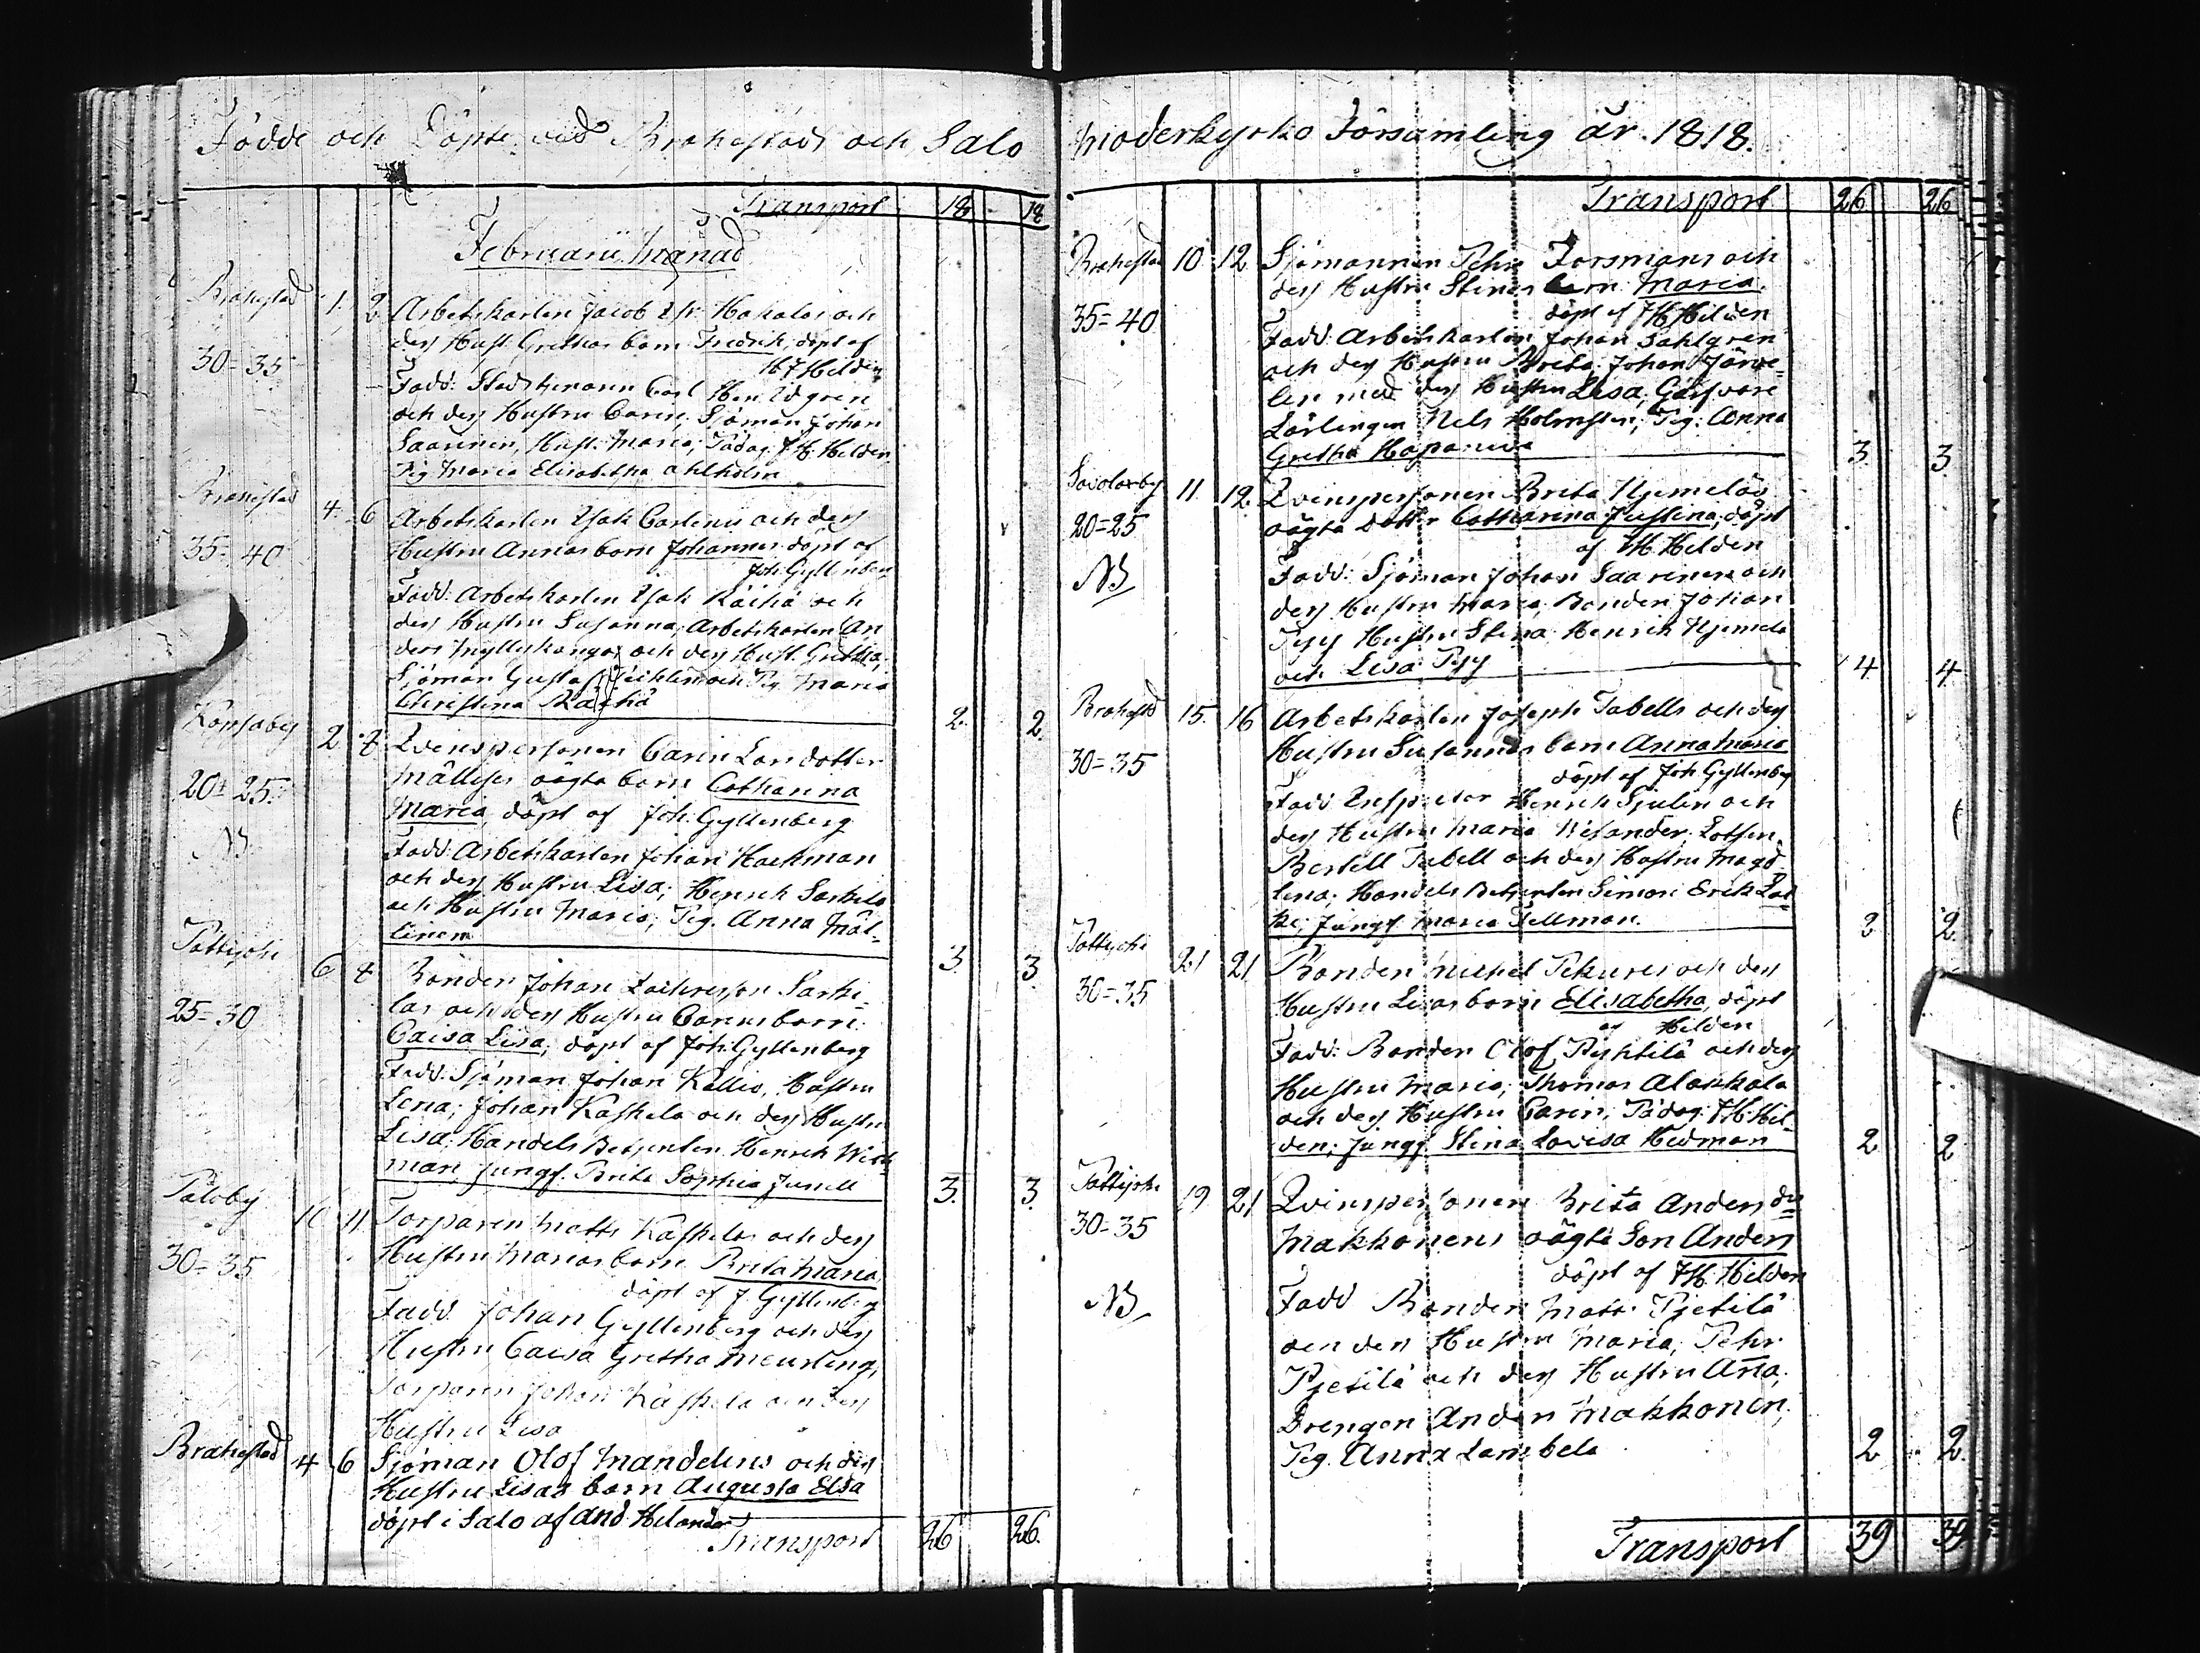 Födde och Döpte vid Brahestads och Salo
Transport 18 18
Februarii Månad
Brahestad 1. 2 Arbetskarlen Jacob Hakalas och
30=35 dess Hust. Grethas barn Fredrik, döpt af
Hilden
Fadd: Carl Hen. Idgren
och dess Hustru Carin, Sjöman Johan
Saarinen, Hust. Maria, Pädag. Hilden
Pig. Maria Elisabetha Ahlholm
Brahestad 4. 6 Arbetskarlen Isak Carlenii och dess
35=40 Hustru Annas barn Johannes döpt af
Joh. Gyllenberg
Fadd: Arbetskarlen Isak Räihä och
dess Hustru Susanna, Arbetskarlen An
ders Myllykangas och dess Hust. Gretha;
Sjöman Gustaf och Pig. Maria
Christina Räihä 2. 2.
Kopsaby 2 8 Qvinspersonen Carin Larsdotter
20=25. oägta barn Catharina
Maria, döpt af Joh. Gyllenberg
NB Fadd: Arbetskarlen Johan Hackman
och dess Hustru Lisa; Henrik Sarkela
och Hustru Maria; Pig. Anna Mäl-
linen 3 3
Pattijoki 6 8 Bonden Johan Zachrisson Sarke-
25=30 las och dess Hustru Carins barn
Caisa Lisa, döpt af Joh. Gyllenberg
Fadd: Sjöman Johan Kallio, Hustru
Lena; Johan Kaskela och dess Hustru
Lisa, Handels Betjenten Henrik Wich
man, Jungf. Brita Sophia Junell 3. 3.
Paloby 10 11. Torparen Matts Kaskelas och dess
30=35 Hustru Marias barn Brita Maria,
döpt af J Gyllenberg
Fadd Johan Gyllenberg och dess
Hustru Caisa Gretha Meurling,
Torparen Johan Kaskela och dess
Hustru Lisa
Brahestad 4 6 Sjöman Olof Mandelins och dess
Hustru Lisas barn Augusta Elsa
döpt i Salo af And Helander
Transport 26 26.
Moderkyrko Församling år. 1818.
Transport 26 26
Brahestad 10. 12. Sjömannen Pehr Forsmans och
dess Hustru Stinas barn Maria,
35=40 döpt af Hilden
Fadd: Arbetskarlen Johan Sahlgren
och dess Hustru Brita, Johan Järve-
len med dess Hustru Lisa, Garfvare
Lärlingen Nels Holmsten; Pig. Anna
Gretha Hapanen 3. 3
Savolaxby 11. 12. Qvinspersonen Brita Njemeläs
20=25 oägta dotter Catharina Justina, döpt
af Hilden
NB Fadd: Sjöman Johan Saarinen och
dess Hustru Maria, Bonden Johan
Pisy Hustru Stina, Henrik Njemelä
och Lisa Pisy 4 4
Brahestad 15. 16 Arbetskarlen Joseph Tabells och dess
Hustru Susannas barn Anna Maria
30=35 döpt af Joh. Gyllenberg
Fadd Inspector Henrik Sjulin och
dess Hustru Maria Lotsen
Bertell Tabell och dess Hustru Magd
lena; Handels Betjenten Simon Erik
Jungf. Maria Fellman. 2 2
Pattijoki 21 21 Bonden Michel Pekuris och dess
30=35 Hustru Lisas barn Elisabetha, döpt
af Hilden
Fadd: Bonden Olof Pyhtilä och dess
Hustru Maria; Thomas Alankola
och dess Hustru Carin; Pädag. Hil-
den; Jungf. Stina Lovisa Hedman 2 2
Pattijoki 19 21 Qvinspersonen Brita Anders dr
30=35 Makkonens oägta Son Anders
döpt af Hilden
NB Fadd Bonden Matts Pjetilä
och dess Hustru Maria; Pehr
Pjetilä och dess Hustru Aña,
Drengen Anders Makkonen,
Pig. Anna Lambela 2 2.
Transport 39 39